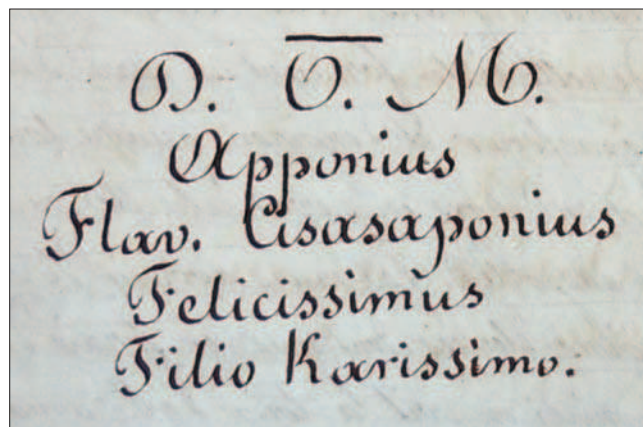 D. O̅. M.
Apponius
Flav. Cisasaponius
Felicissimus
Filio Karissimo.